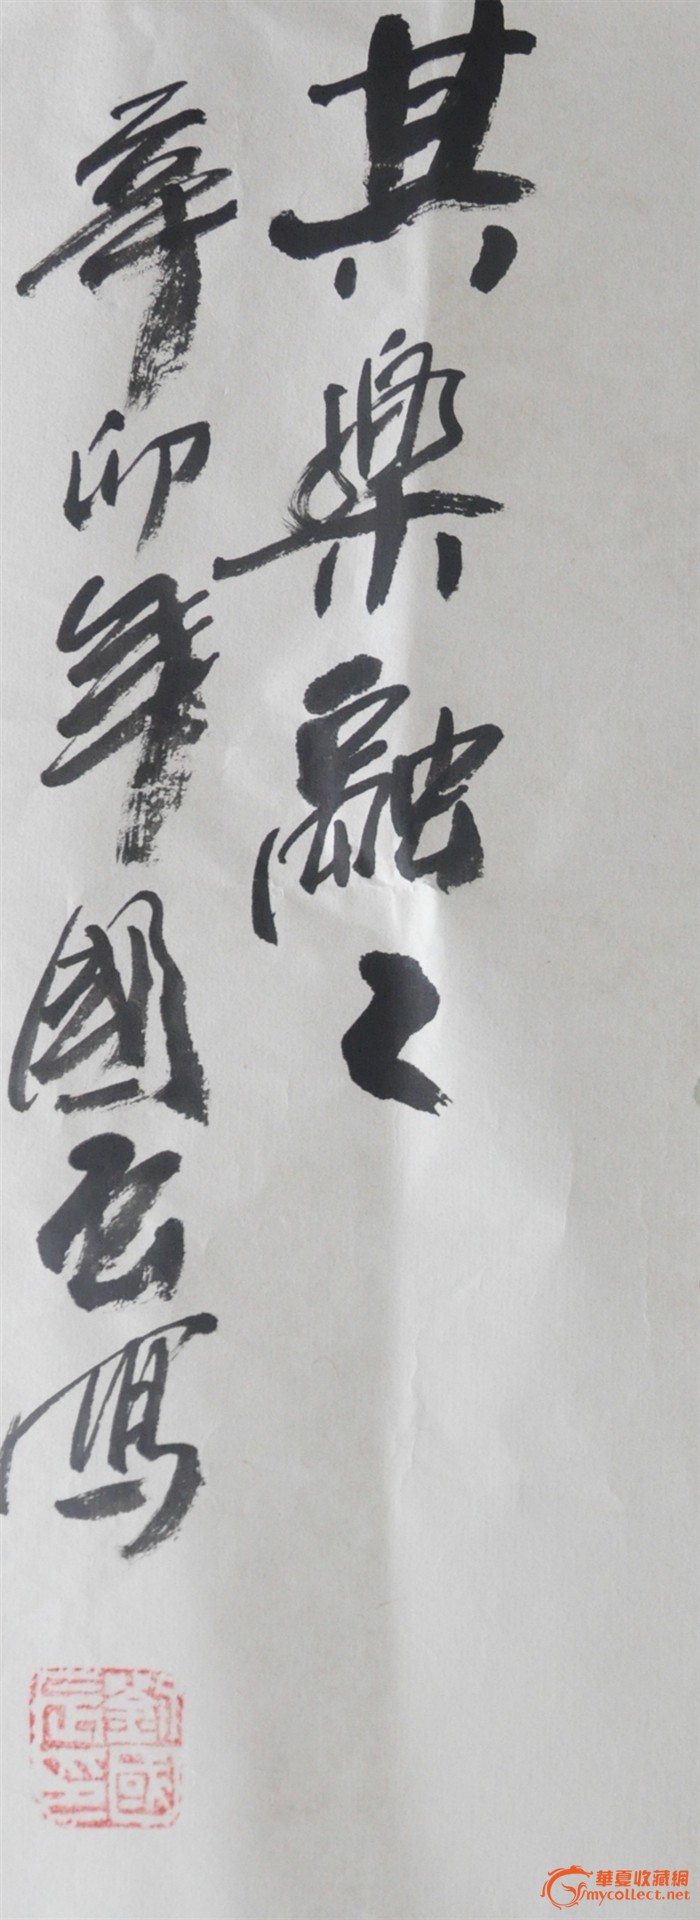 其樂融〻
辛卯年國云寫
劉國
印
華夏收藏網
mycollect.net